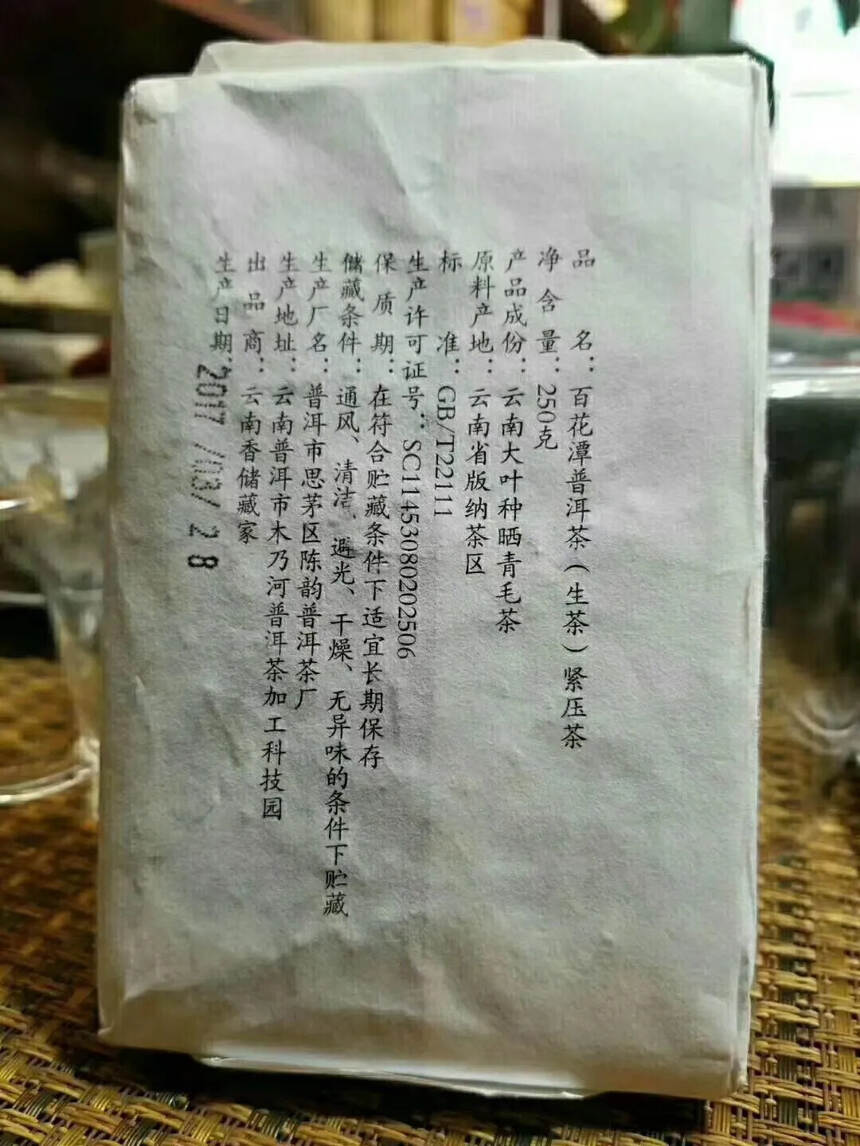 品名：百花潭普洱茶（生茶）紧压茶
净含量：250克
产品成份：云南大叶种晒青毛茶
原料产地：云南省版纳茶区
标准：GB/T22111
生产许可证号：SC11453080202506
保质期：在符合贮藏条件下适宜长期保存
储藏条件：通风、清洁、避光、干燥、无异味的条件下贮藏
生产厂名：普洱市思茅区陈韵普洱茶厂
生产地址：云南普洱市木乃河普洱茶加工科技园
出品商：云南香储藏家
生产日期：2017/03/28